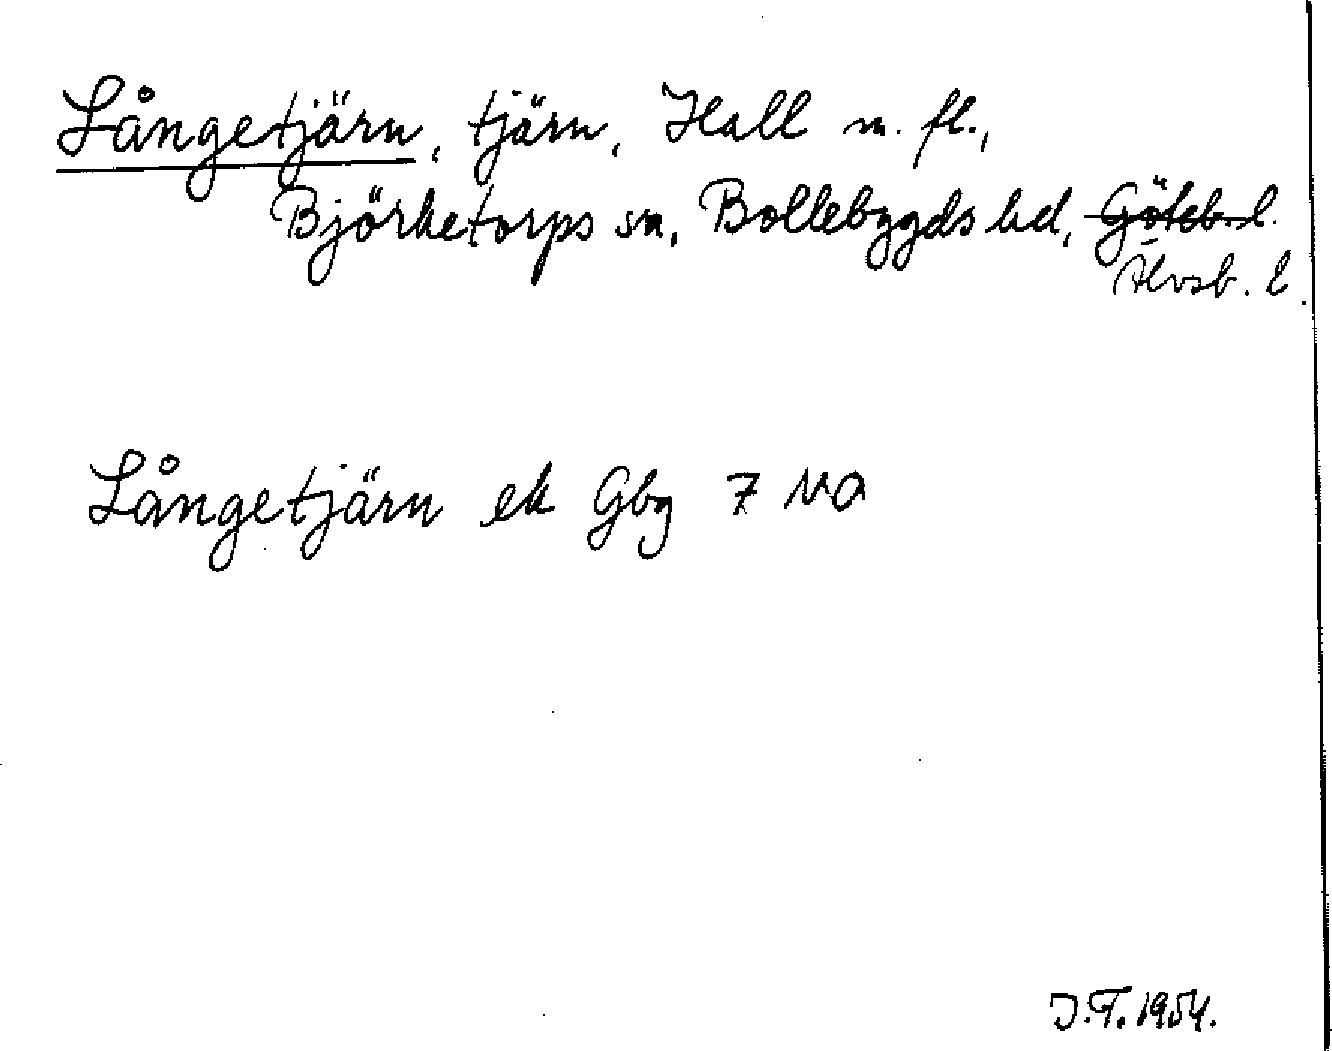 Långetjärn, tjärn, Hall m. fl.,
Björketorps sn, Bollebygds hd, Göteb. l.
Älvsb. l.
Långetjärn ek Gbg 7 NO
J.T. 1954.